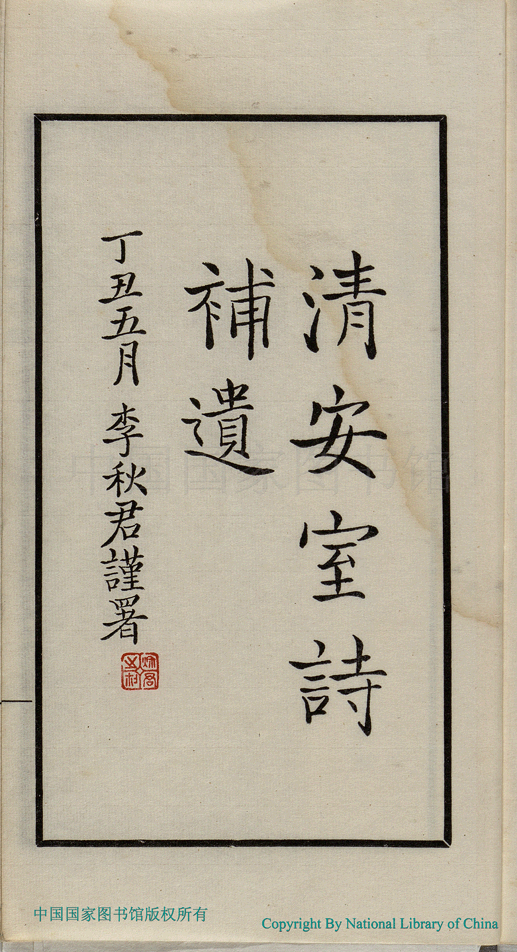 清安室詩
補遺
丁丑五月 李秋君謹署
中国国家图书馆
中国国家图书馆版权所有
Copyright By National Library of China